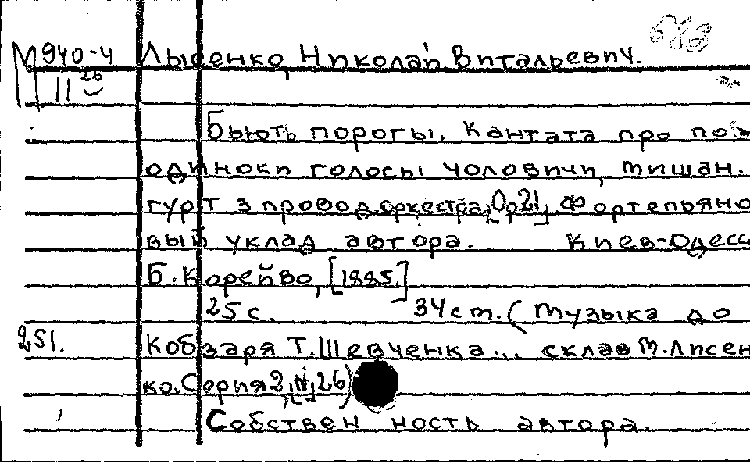 М 940-4 Лысенко, Николай Витальевич.
11 26
Бьють порогы. Кантата про
одиноки голосы чоловичи, мишан.
гурт з провод оркестра, Ор 21, Фортепьяно
вый уклад автора. Киев-Одесс
Б. Корейво, [1885.]
25 с. 34 ст. (Музыка до
251. Кобзаря Т. Шевченка... склав М. Лисен
ко. Серия 2, N, 26)
Собственность автора.